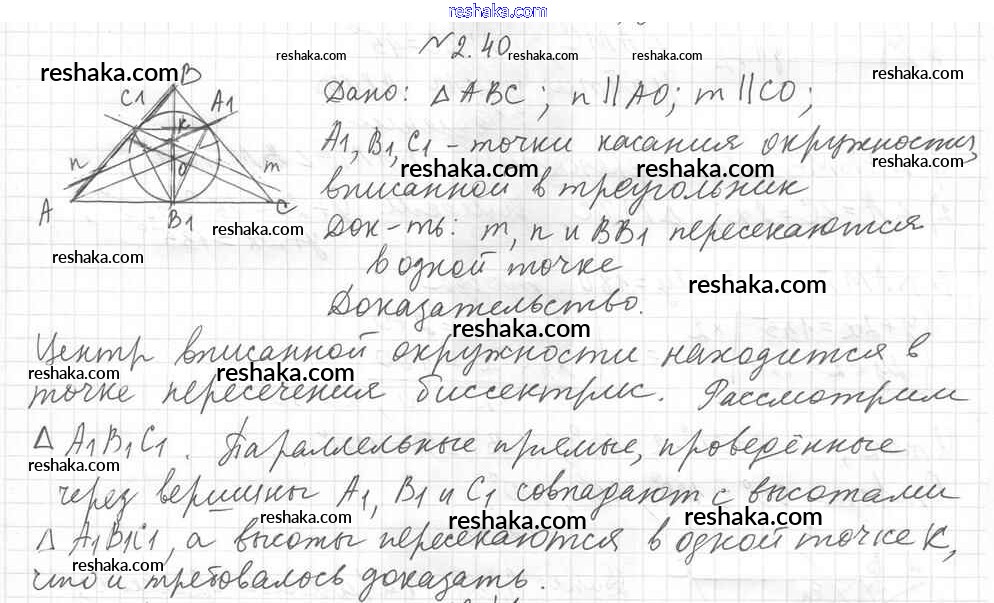 reshaka.com
№2.40
reshaka.com reshaka.com reshaka.com
reshaka.com
B
C1 A1
K
n O m
A B1 C
Дано: △ABC; n||AO; m||CO;
A1, B1, C1 - точки касания окружности,
reshaka.com reshaka.com reshaka.com
вписанной в треугольник
reshaka.com
Док-ть: m, n и BB1 пересекаются
reshaka.com
в одной точке
reshaka.com
Доказательство.
reshaka.com
Центр вписанной окружности находится в
reshaka.com reshaka.com
точке пересечения биссектрис. Рассмотрим
△A1B1C1. Параллельные прямые, проведённые
reshaka.com
через вершины A1, B1 и C1 совпадают с высотами
reshaka.com reshaka.com reshaka.com
△A1B1C1, а высоты пересекаются в одной точке K,
reshaka.com
что и требовалось доказать.